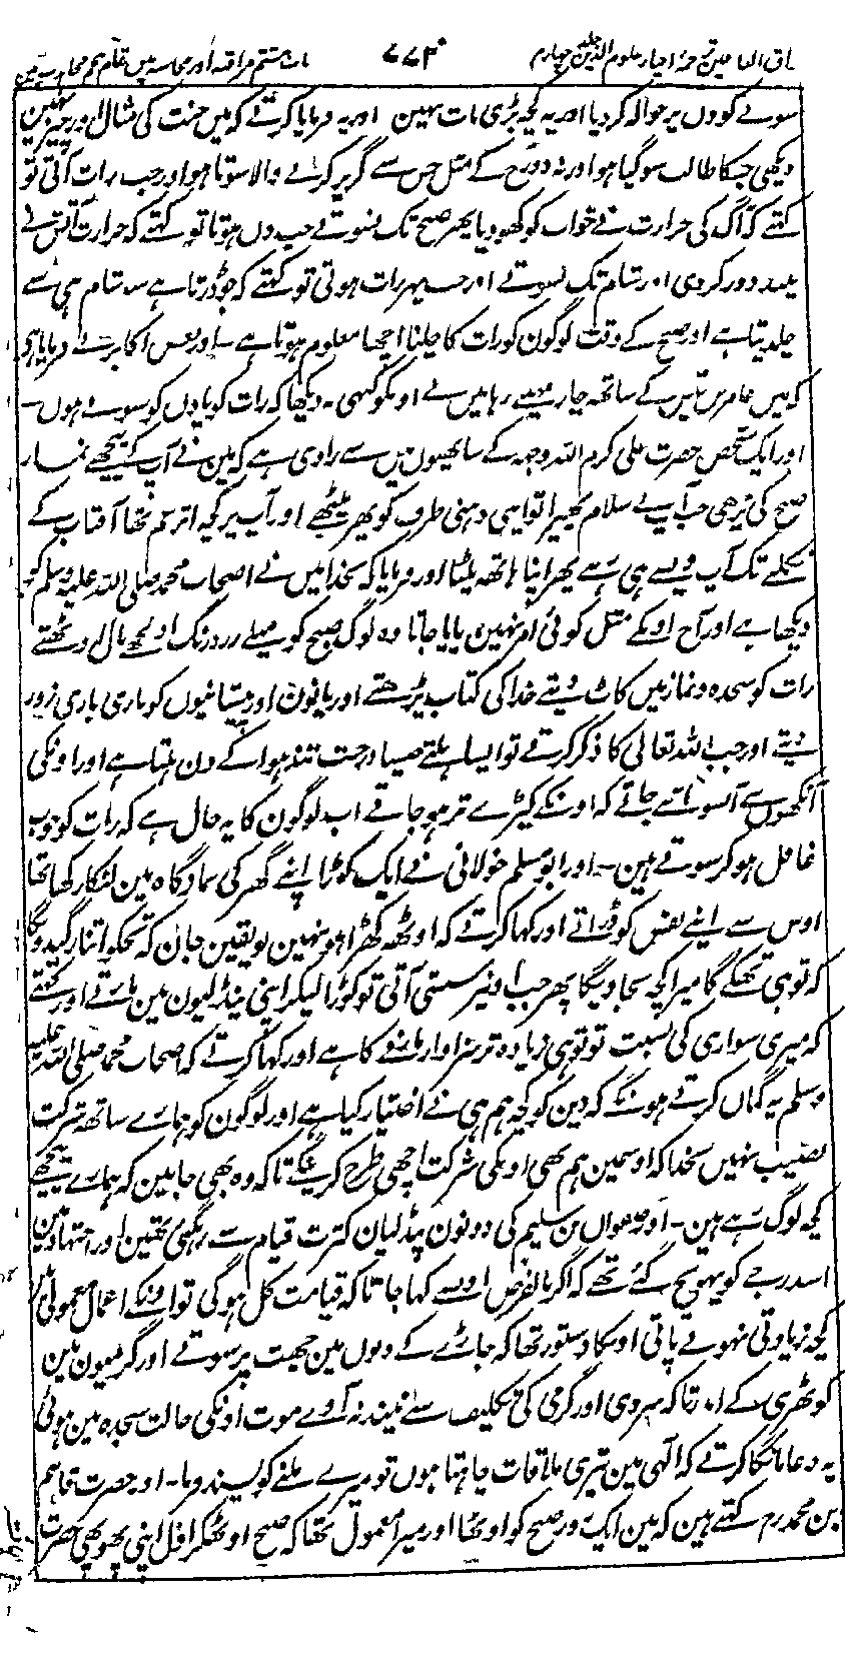 مذاق العارفین ترجمہ احیاء علوم الدین جلد چہارم ۷۷۲ باب ہشتم مراقبہ اور محاسبہ میں مقام پنجم
سونے کو دوں پر حوالہ کردیا اور یہ کچھ بڑی بات نہین اور یہ فرمایا کرتے کہ میں جنت کی مثال اور چیز نہین
دیکھی جسکا طالب سوگیا ہو اور نہ دوزخ کے مثل جس سے گریز کرنے والا سوتا ہو اور جب رات آتی تو
کہتے کہ آگ کی حرارت نے خواب کو کھو دیا پھر صبح تک نسوتے جب دن ہوتا تو کہتے کہ حرارت آتش نے
نیند دور کردی اور شام تک نسوتے اور جب پھر رات ہوتی تو کہتے کہ جو ڈرتا ہے سو شام ہی سے
چلدیتا ہے اور صبح کے وقت لوگون کو رات کا چلنا اچھا معلوم ہوتا ہے ۔ اور بعض اکابر نے فرمایا ہی
کہ میں عامر بن قیس کے ساتھ چار مہینے رہا میں نے اونکو کبھی ۔ دیکھا کہ رات کو یا دن کو سوئے ہوں ۔
اور ایک شخص حضرت علی کرم اللہ وجہہ کے ساتھیوں میں سے راوی ہے کہ مین نے آپ کے پیچھے نماز
صبح کی پڑھی جب آپ نے سلام پھیرا تو اپنی دہنی طرف کو پھر بیٹھے اور آپ پر کچھ اثر غم تھا آفتاب کے
نکلنے تک آپ ویسے ہی رہے پھر اپنا ہاتھ پلٹا اور فرمایا کہ بخدا میں نے اصحاب محمد صلی اللہ علیہ وسلم کو
دیکھا ہے اور آج اونکے مثل کوئی امر نہین پایا جاتا وہ لوگ صبح کو میلے زرد رنگ اولجھے بال اوٹھتے
رات کو سجدہ و نماز میں کاٹ دیتے خدا کی کتاب پڑھتے اور پانون اور پیشانیوں کو باری باری زور
دیتے اور جب اللہ تعالی کا ذکر کرتے تو ایسا ہلتے جیسا درخت تند ہوا کے دن ہلتا ہے اور اونکی
آنکھوں سے آنسو اتنے جاتے کہ اونکے کپڑے تر ہو جاتے اب لوگون کا یہ حال ہے کہ رات کو خوب
غافل ہوکر سوتے ہین ۔ اور ابو مسلم خولانی نے ایک کوڑا اپنے گھر کی نماز گاہ مین لٹکا رکھا تھا
اوس سے اپنے نفس کو ڈراتے اور کہا کرتے کہ اوٹھ کھڑا ہو نہین تو یقین جان کہ تجکو اتنا رگیدونگا
کہ تو ہی تھکے گا میرا کچھ نجاویگا پھر جب اونپر سستی آتی تو کوڑا لیکر اپنی پنڈلیون مین مارتے اور کہتے
کہ میری سواری کی نسبت تو تو ہی زیادہ تر سزاوار مارنے کا ہے اور کہا کرتے کہ اصحاب محمد صلی اللہ علیہ
وسلم یہ گمان کرتے ہونگے کہ دین کو کچھ ہم ہی نے اختیار کیا ہے اور لوگون کو ہمارے ساتھ شرکت
نصیب نہیں بخدا کہ اوسمین ہم بھی اونکی شرکت اچھی طرح کرینگے تاکہ وہ بھی جانین کہ ہمارے پیچھے
کچھ لوگ رہے ہین ۔ اور صفوان بن سلیم کی دونون پنڈلیان کثرت قیام سے رہ گئی تھین اور اجتہاد مین
اسدرجے کو پہونچ گئے تھے کہ اگر بالفرض اونسے کہا جاتا کہ قیامت کل ہوگی تو اونکے اعمال معمولی پر
کچھ زیادتی نہونے پاتی اونکا دستور تھا کہ جاڑے کے دنوں مین چھت پر سوتے اور گرمیون مین
کوٹھری کے اندر تاکہ سردی اور گرمی کی تکلیف سے نیند نہ آوے موت اونکی حالت سجدہ مین ہوئی
یہ دعا مانگا کرتے کہ الٰہی مین تیری ملاقات چاہتا ہوں تو میرے ملنے کو پسند فرما ۔ اور حضرت قاسم
بن محمد رح کہتے ہین کہ مین ایک روز صبح کو اوٹھا اور میرا معمول تھا کہ صبح اوٹھکر اول اپنی پھوپھی حضرت